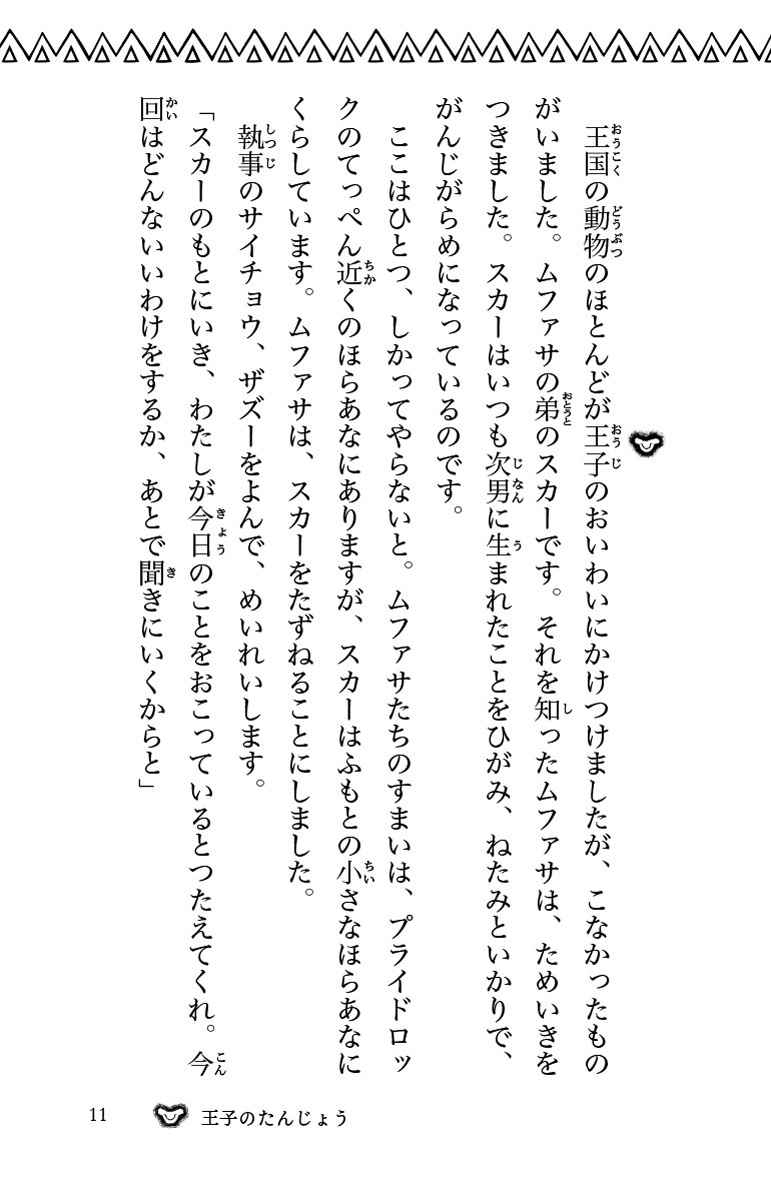 王国の動物のほとんどが王子のおいわいにかけつけましたが、こなかったもの
がいました。ムファサの弟のスカーです。それを知ったムファサは、ためいきを
つきました。スカーはいつも次男に生まれたことをひがみ、ねたみといかりで、
がんじがらめになっているのです。
ここはひとつ、しかってやらないと。ムファサたちのすまいは、プライドロッ
クのてっぺん近くのほらあなにありますが、スカーはふもとの小さなほらあなに
くらしています。ムファサは、スカーをたずねることにしました。
執事のサイチョウ、ザズーをよんで、めいれいします。
「スカーのもとにいき、わたしが今日のことをおこっているとつたえてくれ。今
回はどんないいわけをするか、あとで聞きにいくからと」
11 王子のたんじょう